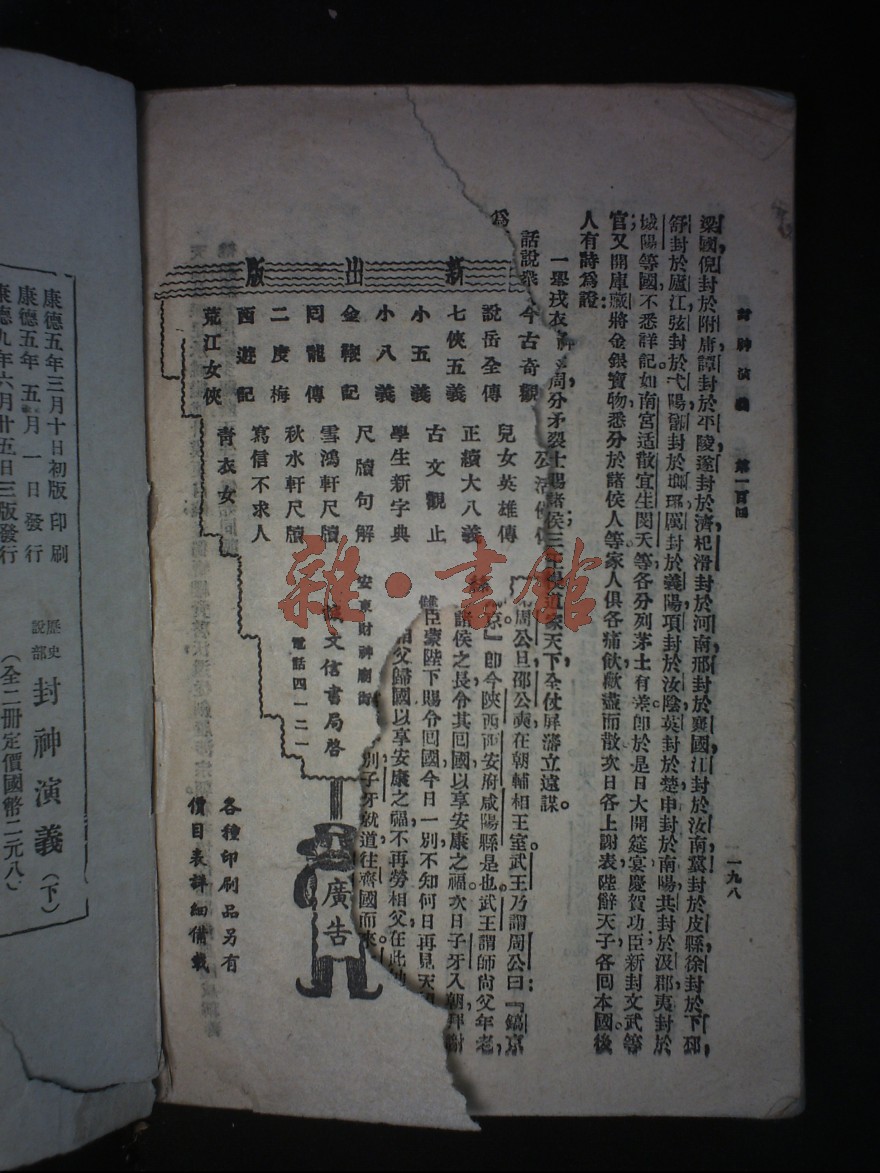 封神演義 第一百回 一九八
梁國倪封於附庸譚封於平陵遂封於濟杞滑封於河南邢封於襄國江封於汝南冀封於皮縣徐封於下邳
舒封於廬江弦封於弋陽鄫封於瑯琊厲封於義陽項封於汝陰英封於楚申封於南陽共封於汲郡夷封於
城陽等國不悉詳記如南宮适散宜生閎夭等各分列茅土有差卽於是日大開筵宴慶賀功臣新封文武等
官又開庫藏將金銀寶物悉分於諸侯人等家人俱各痛飲歡盡而散次日各上謝表陛辭天子各囘本國後
人有詩爲證
一舉戎衣 周分茅裂土賜諸侯三 天下全仗屏藩立遠謀
話說衆
爲
周公旦邵公奭在朝輔相王室武王乃謂周公曰『鎬京
京』卽今陝西西安府咸陽縣是也武王謂師尚父年老
諸侯之長令其囘國以享安康之福次日子牙入朝拜謝
臣蒙陛下賜令囘國今日一別不知何日再見天
相父歸國以享安康之福不再勞相父在此
別子牙就道往齊國而來
新出版
今古奇觀
說岳全傳 兒女英雄傳
七俠五義 正續大八義
小五義 古文觀止
小八義 學生新字典
金鞭記 尺牘句解
囘龍傳 雪鴻軒尺牘
二度梅 秋水軒尺牘
西遊記 寫信不求人
荒江女俠 青衣女
安東財神廟街
文信書局啓
電話四一二一
廣告
各種印刷品另有
價目表詳細備載
雜·書館
康德五年三月十日初版印刷
康德五年五月一日發行
康德九年六月廿五日三版發行
歷史說部 封神演義（下）
（全二冊定價國幣二元八